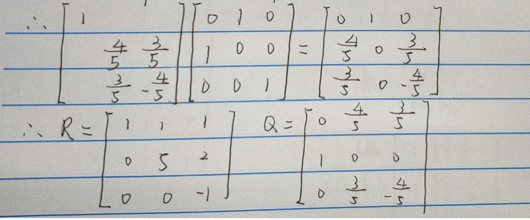 ∴ [1 ; 4/5 3/5 ; 3/5 -4/5] [0 1 0 ; 1 0 0 ; 0 0 1] = [0 1 0 ; 4/5 0 3/5 ; 3/5 0 -4/5]
∴ R = [1 1 1 ; 0 5 2 ; 0 0 -1] Q = [0 4/5 3/5 ; 1 0 0 ; 0 3/5 -4/5]